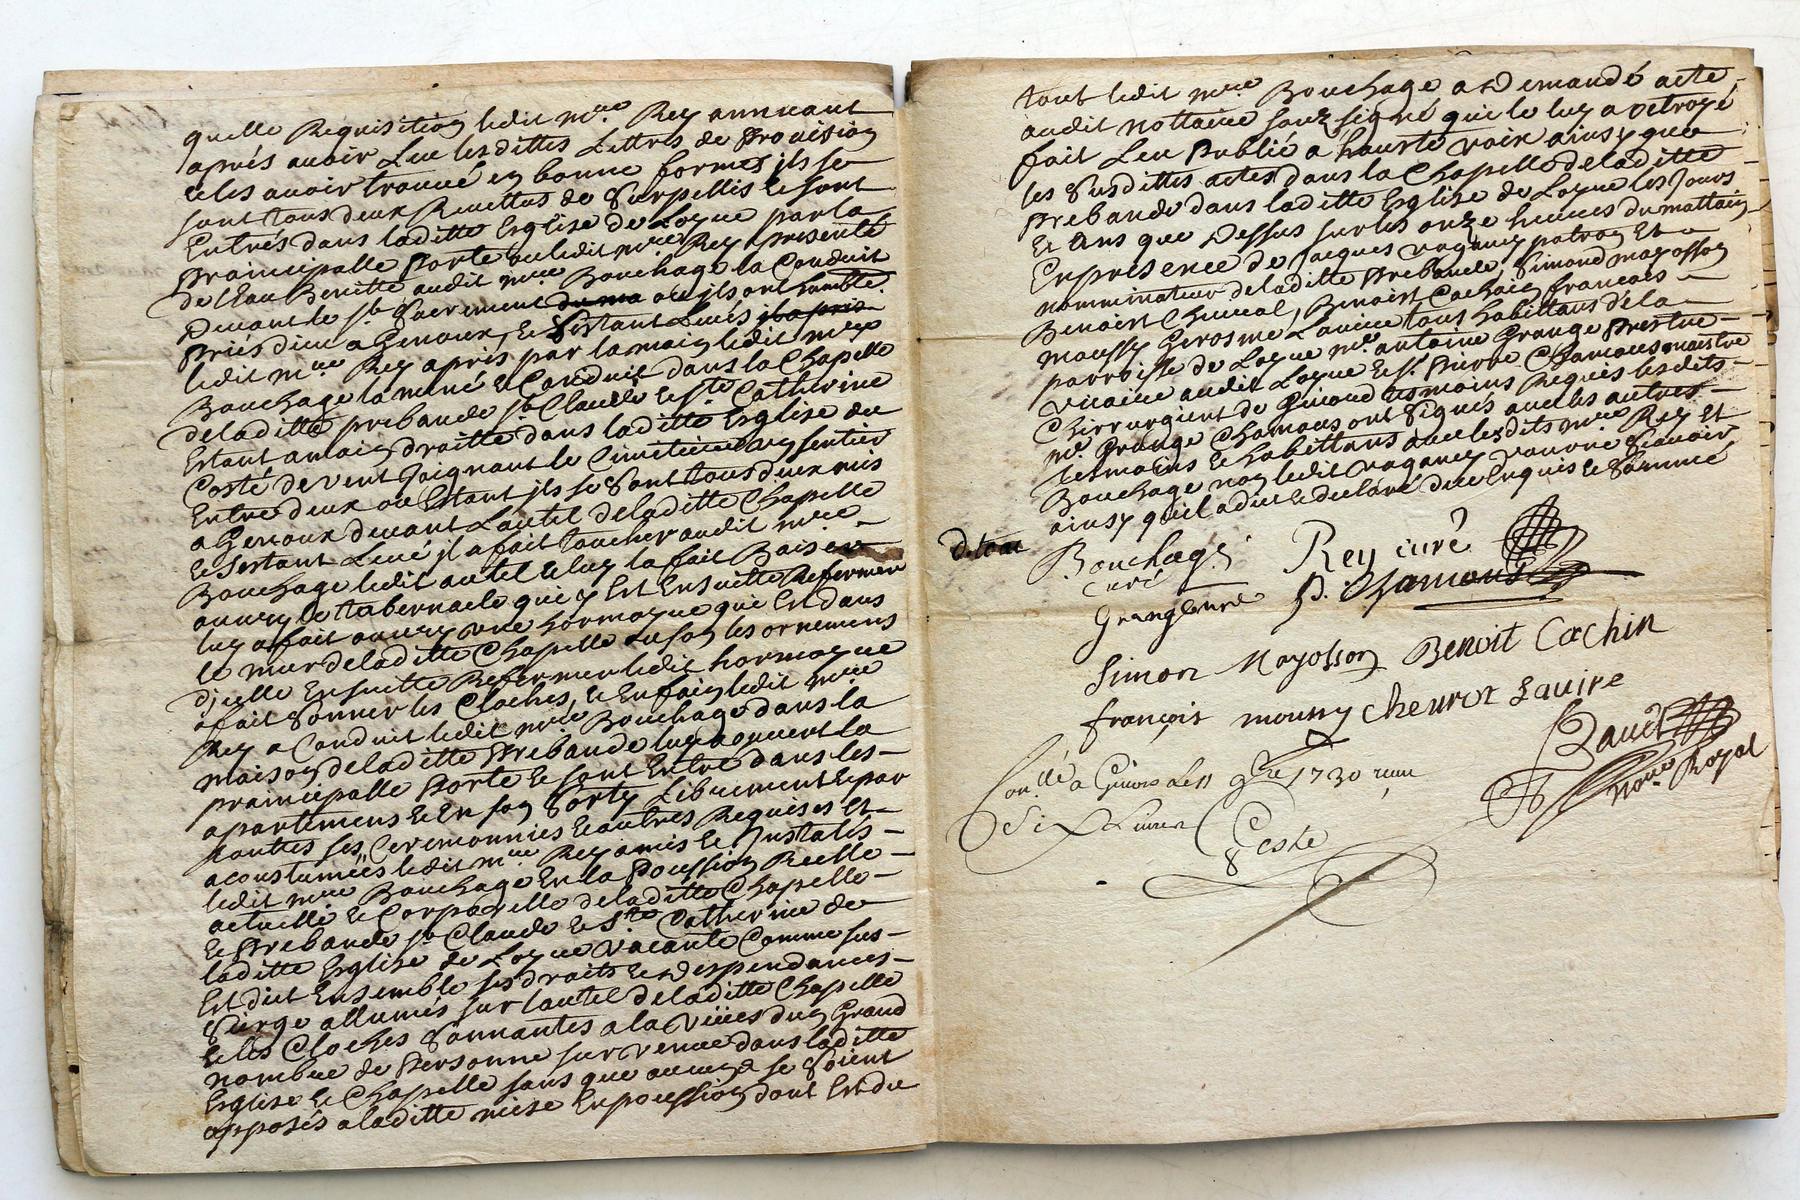 quelle Requisition ledit mre Rey annuant
aprés auoir Leu lesdittes Lettres de Prouision
et les auoir trouué en bonne formes ils se
sont tous deux Reuettus de Surpellis et sont
Entrés dans laditte Esglise de Loyue par la
Prainsipalle Porte ou ledit mre Rey a presenté
de l'Eau Benitte audit mre Bouchage la Conduit
Deuant le st Sacrement ou ils ont
Priés dieu a Genoux, et S'estant Leués
ledit mre Rey aprés par la main ledit mre
Bouchage la mené et Conduit dans la Chapelle
deladitte prebande st Claude et ste Catherine
Estant a main draitte dans laditte Esglise du
Costé de vent Joignant le Cimetiere un sentier
Entre deux ou Estant ils se Sont tous deux mis
a Genoux deuant Lautel deladitte Chapelle
et S'estant Leué il a fait toucher audit mre
Bouchage ledit autel et luy la fait Baiser
ouury le tabernacle quey Est Ensuitte Refermer
luy a fait ouury une hormoyue qui Est dans
le mur deladitte Chapelle les ornemens
dicelle Ensuitte Refermer ledit hormoyue
a fait Sonner les Cloches, et Enfain ledit mre
Rey a Conduit ledit mre Bouchage dans la
maison deladitte Prebande luy a ouuert la
prainsipalle Porte et sont Entré dans les
apartemens et En son Sorty Librement et par
toutes ses Ceremonnies et autres Requises et
acoustumées ledit mre Rey a mis et Installés
ledit mre Bouchage En la Possession Reelle
actuelle et Corporelle deladitte Chapelle
et Prebande st Claude et Ste Catherine de
laditte Esglise de Loyue vacante Comme sus
Est dict Ensemble ses draits et Despendances
Sierge allumés sur lautel deladitte Chapelle
et les Cloches Sonnantes a la Vüies dun Grand
nombre de Personne suruenue dans laditte
Esglise et Chapelle sans que aucuns se Soient
opposés a laditte mise En possession dont Et du
tout ledit mre Bouchage a Demandé acte
audit nottaire souzsigné qui le luy a octroyé
fait Leu Publié a hautte voix ainsy que
les Susdittes actes dans la Chapelle deladitte
Prebande dans laditte Esglise de Loyue les Jours
Et Ans que Dessus sur les onze heures du mattain
En presence de Jacques patron Et
nomminateur deladitte Prebande, Simond mayosson
Benoist Benoist Cachain francois
moussy Gerosme Lauire tous habittans dela
parroisse de Loyue mre antoine Grange Prestre
vicaire audit Loyue et sr Pierre Chamous maistre
Chirurgient de Giuord tesmoins Requis lesdits
mre Grange Chamous ont Signés auec les autres
tesmoins et habittans auec lesdits mre Rey et
Bouchage non ledit pour ne Scauoir
ainsy quil a dict et declaré de ce Enquis et Sommé
Bouchage Rey curé
curé
P. Chamous
Simon Mayosson Benoit Cachin
françois moussy cheurot Lauire
Nore Royal
Conllé a Giuors Le 11 9bre 1730 reçu
Six Liures